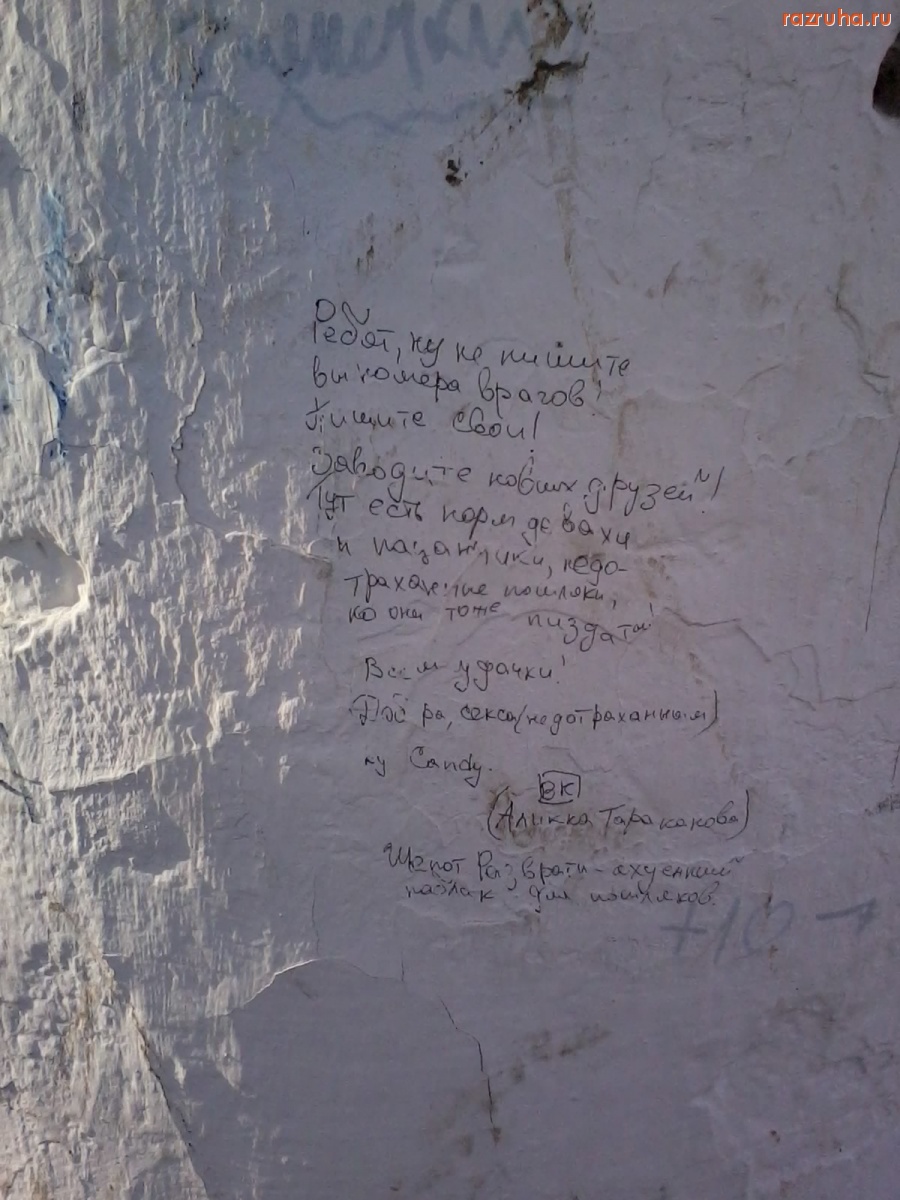 razruha.ru
Ребят, ну не пишите
вы номера врагов!
Пишите свои!
Заводите новых друзей!
Тут есть норм девахи
и пацанчики, недо-
траханные пошляки,
но они тоже пиздатые!
Всем удачки!
Добра, секса (недотраханным)
ну Candy.
ВК
(Аликка Тараканова)
Шепот Разврата - ахуенный
паблик для пошляков.